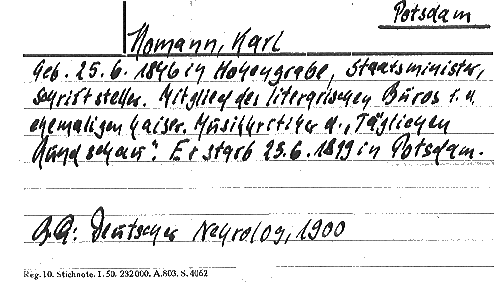 Potsdam
Homann, Karl
Geb. 25.6.1846 in Hohengrabe, Staatsminister,
Schriftsteller. Mitglied des literarischen Büros i. d.
ehemaligen Kaiser. Musikkritiker d. „Täglichen
Rundschau". Er starb 23.6.1899 in Potsdam.
B.Q.: Deutscher Nekrolog, 1900
Reg. 10. Stichnote. I. 50. 232000. A. 803. S. 4062